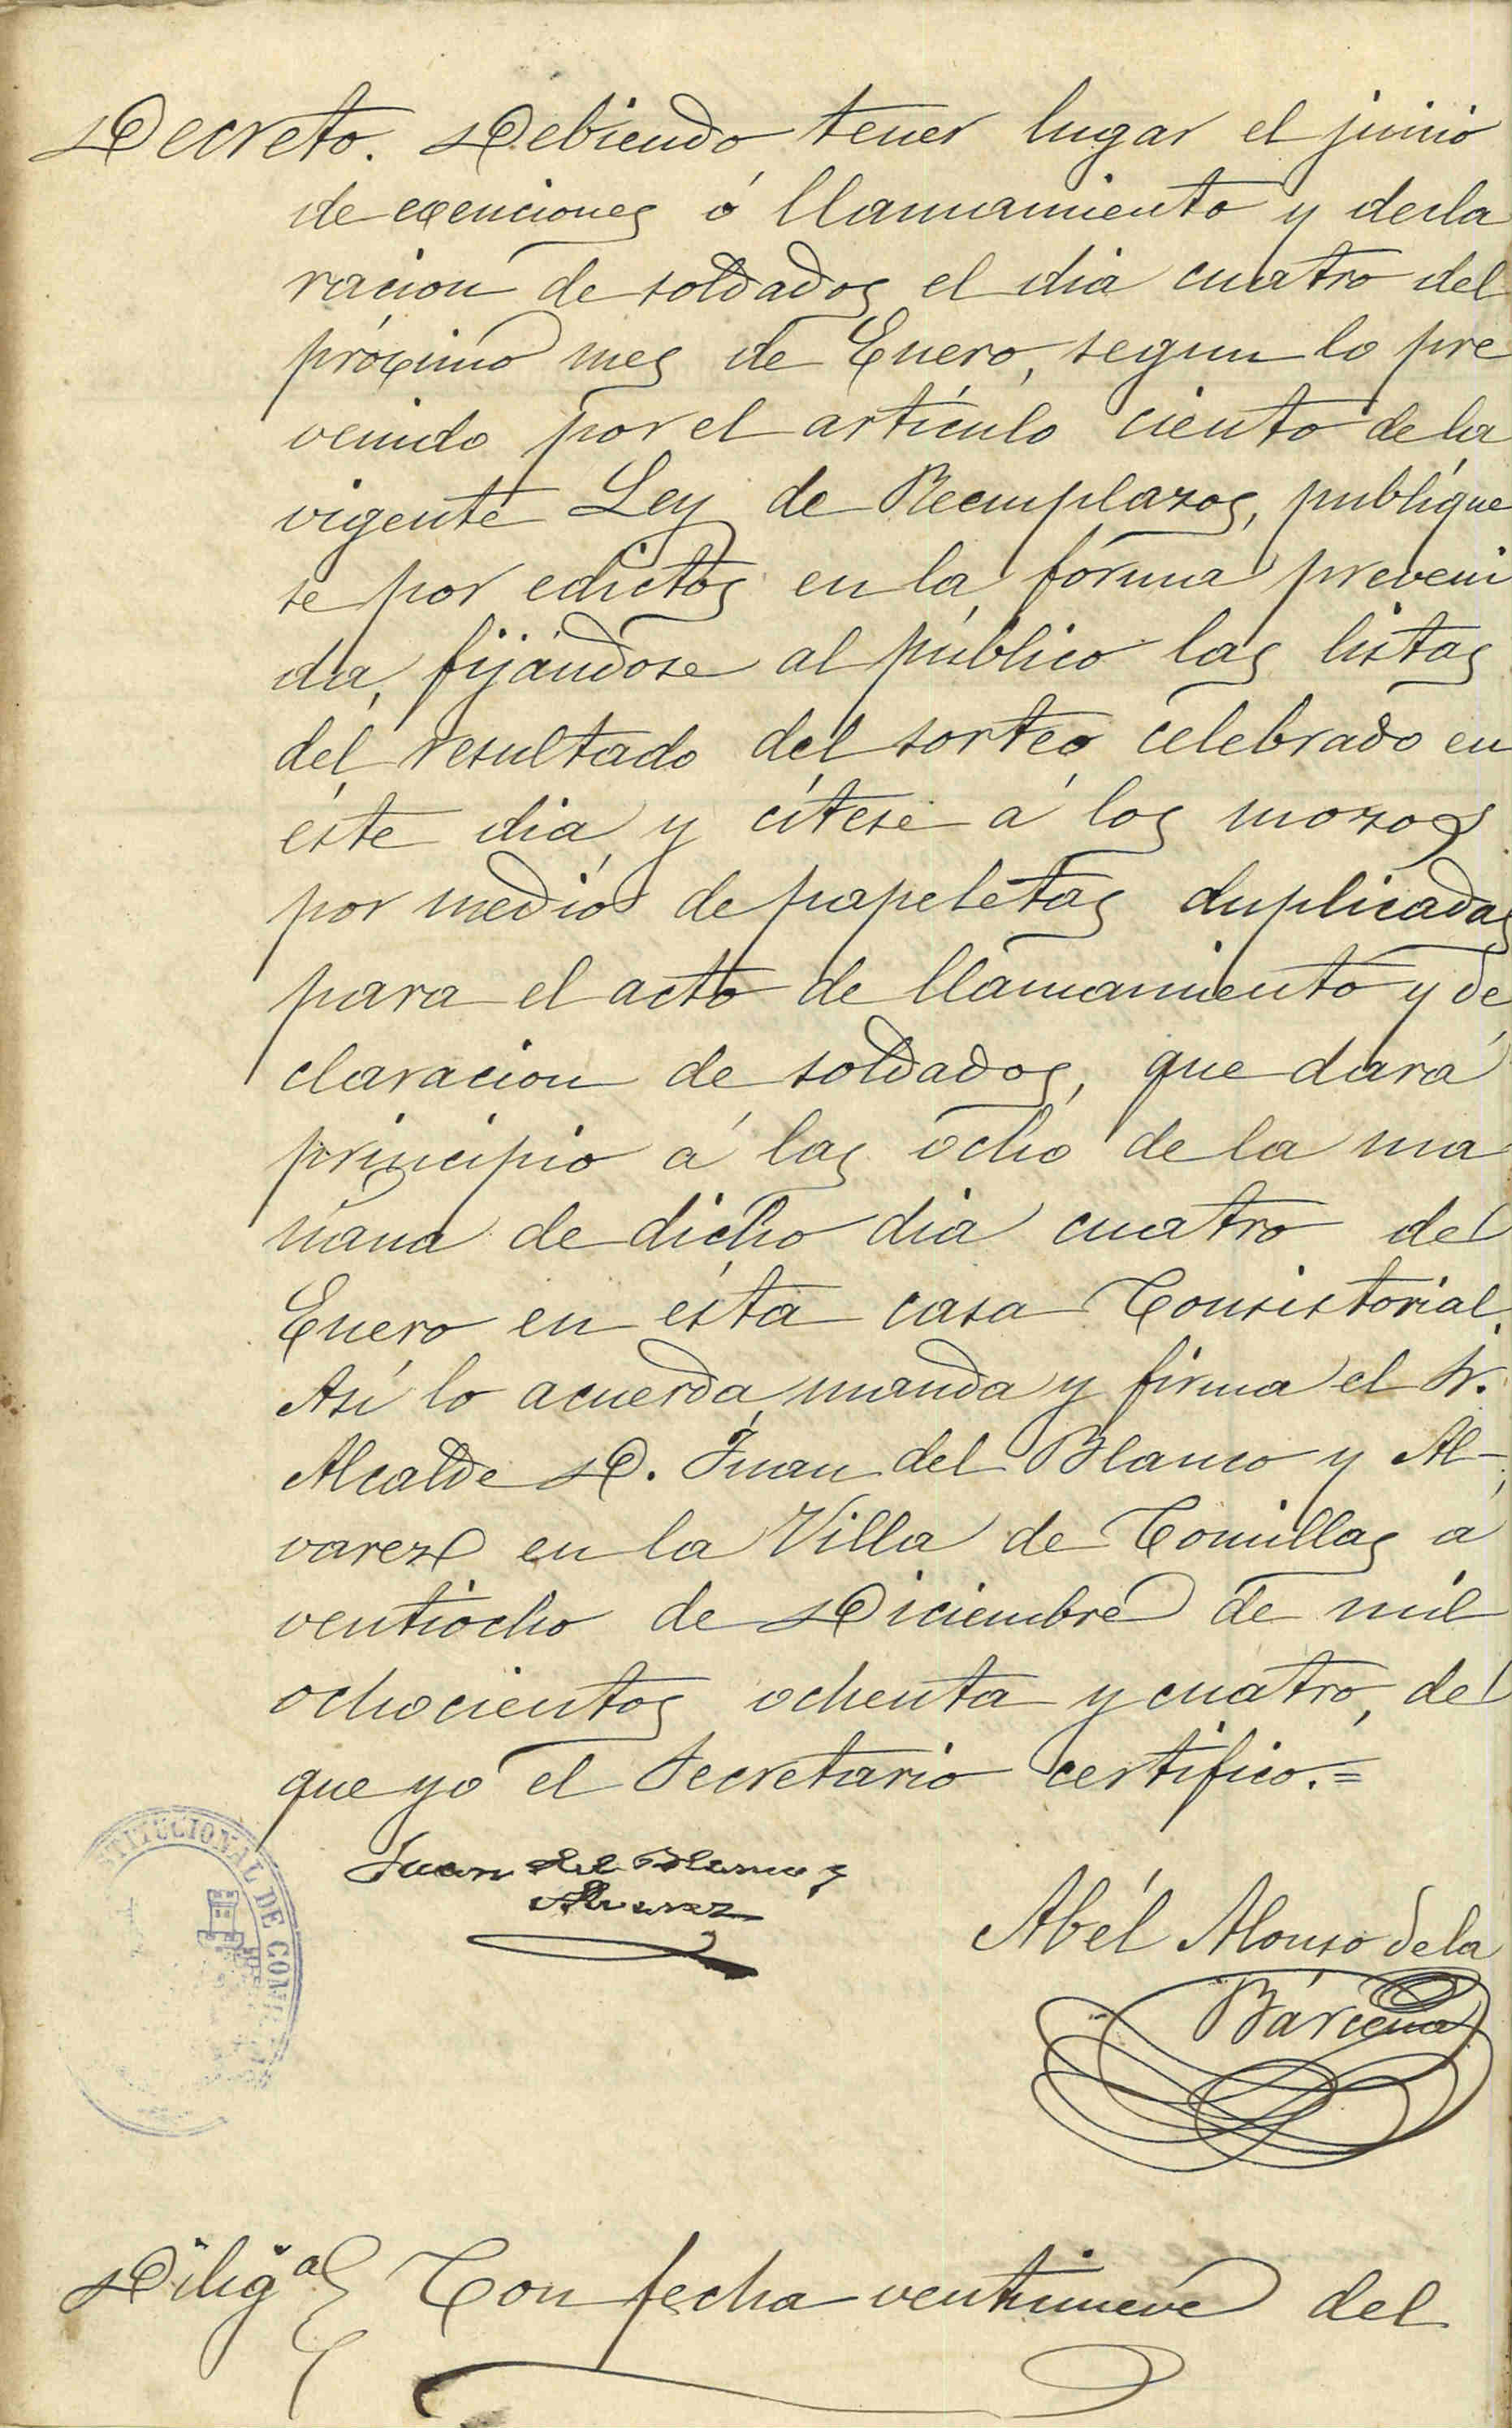 Decreto. Debiendo tener lugar el juicio
de exenciones ó llamamiento y decla
racion de soldados el dia cuatro del
próximo mes de Enero, segun lo pre
venido por el artículo ciento de la
vigente Ley de Reemplazos, publíque
se por edictos en la forma preveni
da, fijándose al público las listas
del resultado del sorteo celebrado en
éste dia y cítese á los mozos
por medio de papeletas duplicadas
para el acto de llamamiento y de
claracion de soldados, que dará
principio á las ocho de la ma
ñana de dicho dia cuatro de
Enero en ésta casa Consistorial.
Así lo acuerda, manda y firma el Sr.
Alcalde D. Juan del Blanco y Al-
varez en la Villa de Comillas á
ventiocho de Diciembre de mil
ochocientos ochenta y cuatro, de
que yo el Secretario certifico.=
Juan del Blanco y
Alvarez
TITUCIONAL DE COM
Abél Alonso de la
Bárcena
Dilig.ª Con fecha ventinueve del